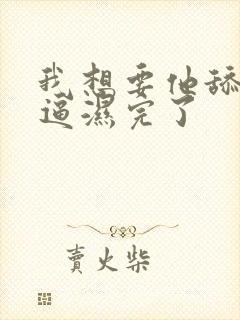 我想要他舔
逼濕完了
賣火柴